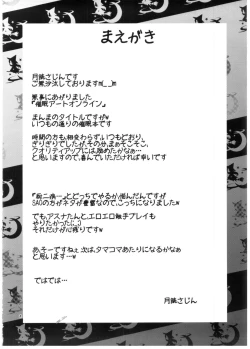 まえがき
月咲さじんです
ご無沙汰しておりますm(_ _)m
無事にあがりました
『催眠アートオンライン』
まんまのタイトルですがw
いつもの通りの催眠本です
時間の方も、相変わらず、いつもどおり、
ぎりぎりでしたが、その分、まめぞこんに、
クオリティアップには努めたかなぁ…
と思いますので、喜んでいただければ幸いです
とどっちでやるか、悩んだんですが
SAOの方がネタが豊富なので、こっちになりましたw
でも、アスナたんと、エロエロ触手プレイも
やりたかった(;_;)
それだけが心残りですw
あ、そーですねぇ次は、タマコマあたりになるかなぁ
と思います…w
ではでは…
月咲さじん